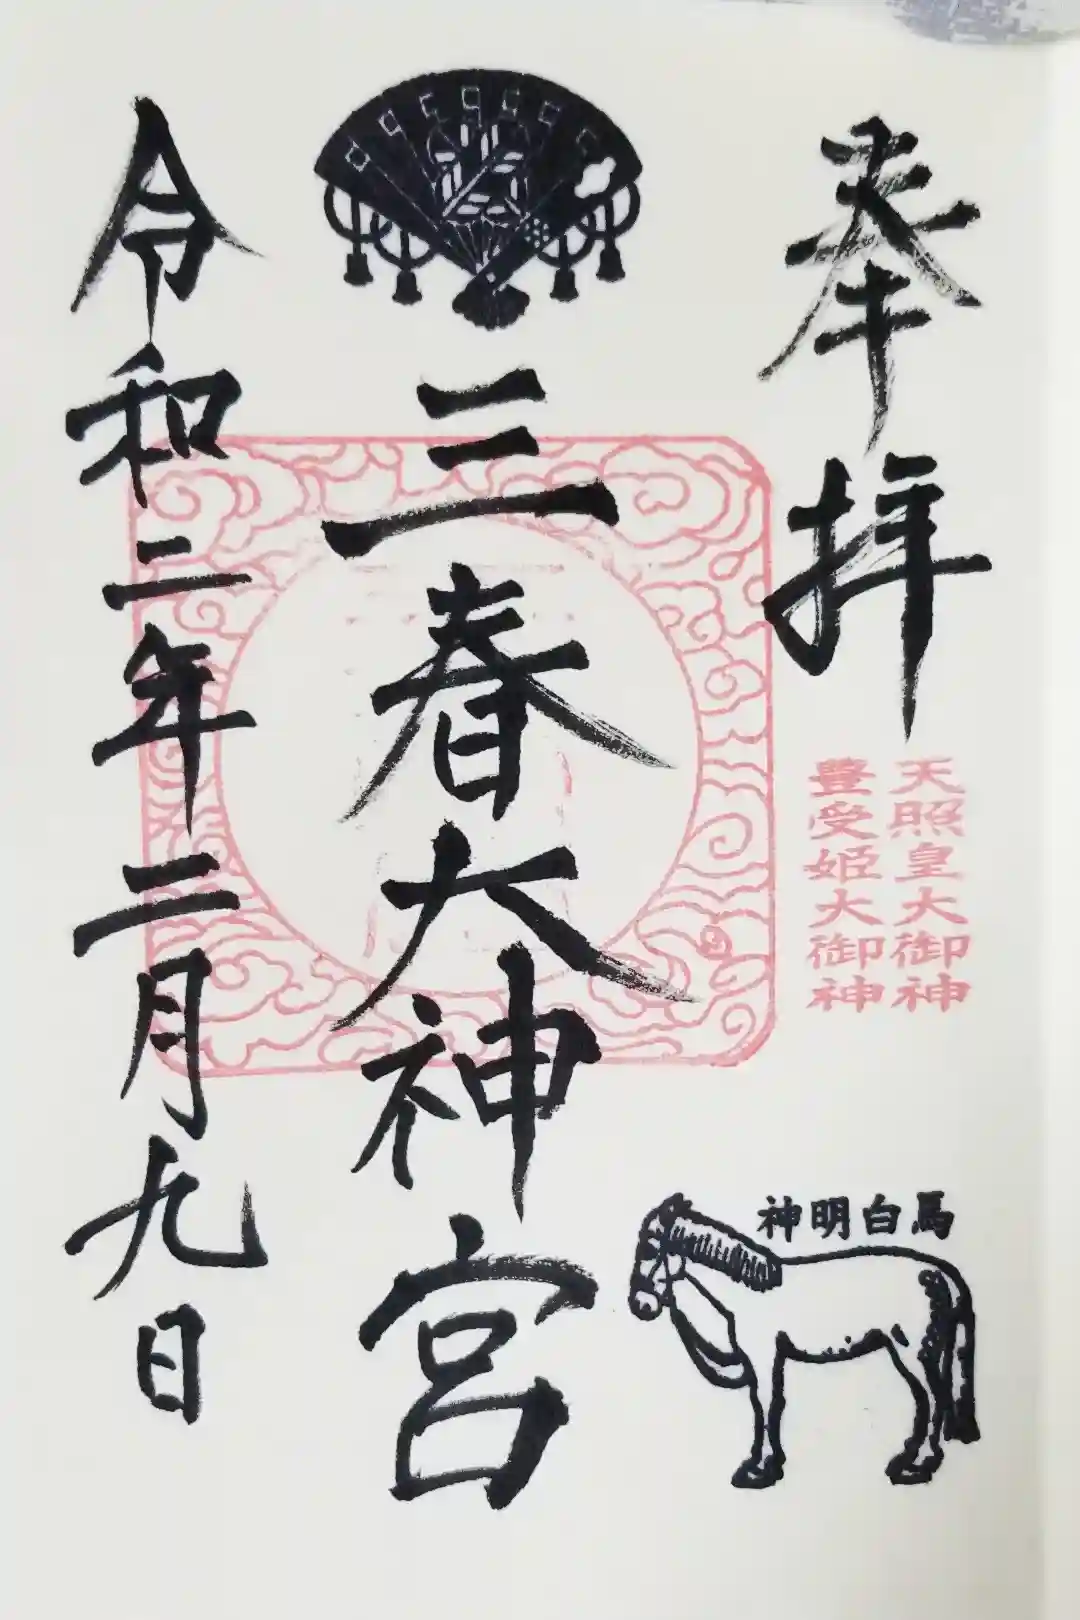 奉拝
天照皇大御神
豊受姫大御神
神明白馬
三春大神宮
令和二年二月九日